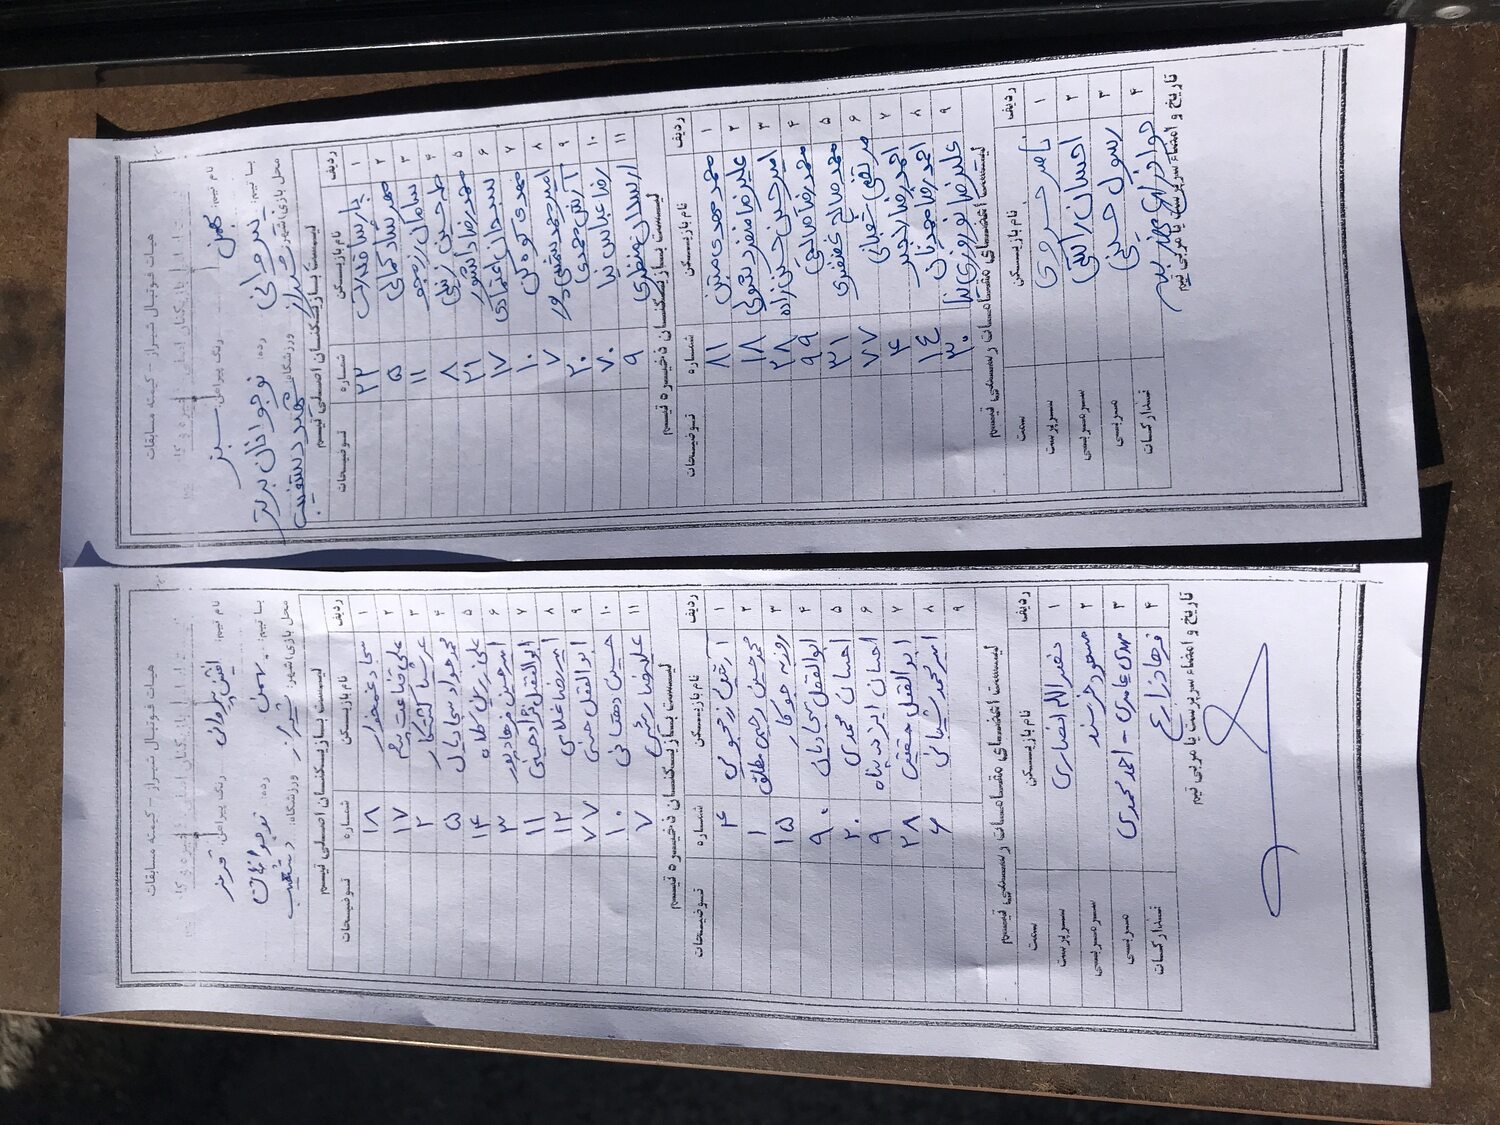 هیات فوتبال شیراز - کمیته مسابقات
نام تیم: بهمن
رنگ پیراهن: سبز
با تیم: پیروانی
رده: نوجوانان برتر
محل بازی: شهر: شیراز
ورزشگاه: شهید دستغیب
لیست بازیکنان اصلی تیم
ردیف نام بازیکن شماره توضیحات
۱ پارسا قدرت ۲۳
۲ مهرشاد کمالی ۵
۳ سامان رزمجو ۱۱
۴ طاحسین ۸
۵ محمدرضا دانشور ۲۱
۶ سبحان اعتمادی ۱۷
۷ مهدی کوه کن ۱۰
۸ امیرمحمد ۷
۹ آرش محمدی ۲۰
۱۰ رضا عباس نیا ۷۰
۱۱ ارسلان منظری ۹
لیست بازیکنان ذخیره تیم
ردیف نام بازیکن شماره توضیحات
۱ محمد مهدی متین ۸۱
۲ علیرضا منفرد ۱۸
۳ امیرحسین حسن زاده ۲۸
۴ محمدرضا صالحی ۹۹
۵ محمد صالح غضنفری ۳۱
۶ مرتضی شعبانی ۷۷
۷ احمدرضا ۴
۸ احمدرضا مهدیان ۱۴
۹ علیرضا نوروزی نیا ۳۰
لیست اعضای مقامات رسمی تیم
ردیف نام بازیکن سمت
۱ ناصر خسروی سرپرست
۲ احسان سرمربی
۳ رسول حسنی مربی
۴ جواد تدارکات
تاریخ و امضاء سرپرست یا مربی تیم
هیات فوتبال شیراز - کمیته مسابقات
نام تیم: افشین پیروانی
رنگ پیراهن: قرمز
با تیم: بهمن
رده: نوجوانان
محل بازی: شهر: شیراز
ورزشگاه: دستغیب
لیست بازیکنان اصلی تیم
ردیف نام بازیکن شماره توضیحات
۱ سجاد غمخوار ۱۸
۲ علی قناعت پیشه ۱۷
۳ عرشیا ۲
۴ محمدجواد سجادیان ۵
۵ علی زرین کلاه ۱۴
۶ امیرحسین فرهادپور ۳
۷ ابوالفضل نژادحسینی ۱۱
۸ امیررضا غلامی ۱۲
۹ ابوالفضل حسنی ۷۷
۱۰ حسین دهقانی ۱۰
۱۱ علیرضا ۷
لیست بازیکنان ذخیره تیم
ردیف نام بازیکن شماره توضیحات
۱ آرتین رزمجویی ۴
۲ محمدحسین رحیمی مطلق ۱
۳ روزبه جوکار ۱۵
۴ ابوالفضل سجادیان ۹۰
۵ احسان محمدی ۲۰
۶ احسان ایزدپناه ۹
۷ ابوالفضل حقیقی ۲۸
۸ امیرمحمد شیبانی ۶
۹
لیست اعضای مقامات رسمی تیم
ردیف نام بازیکن سمت
۱ انصاری سرپرست
۲ مسعود خرسند سرمربی
۳ مهدی عامری - احمد محمدی مربی
۴ فرهاد زارع تدارکات
تاریخ و امضاء سرپرست یا مربی تیم